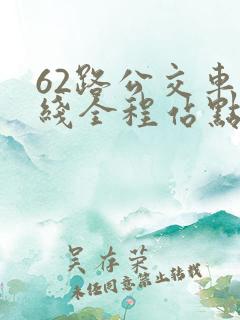 62路公交車
綫全程佔點
吴存荣
未任同意禁止转载